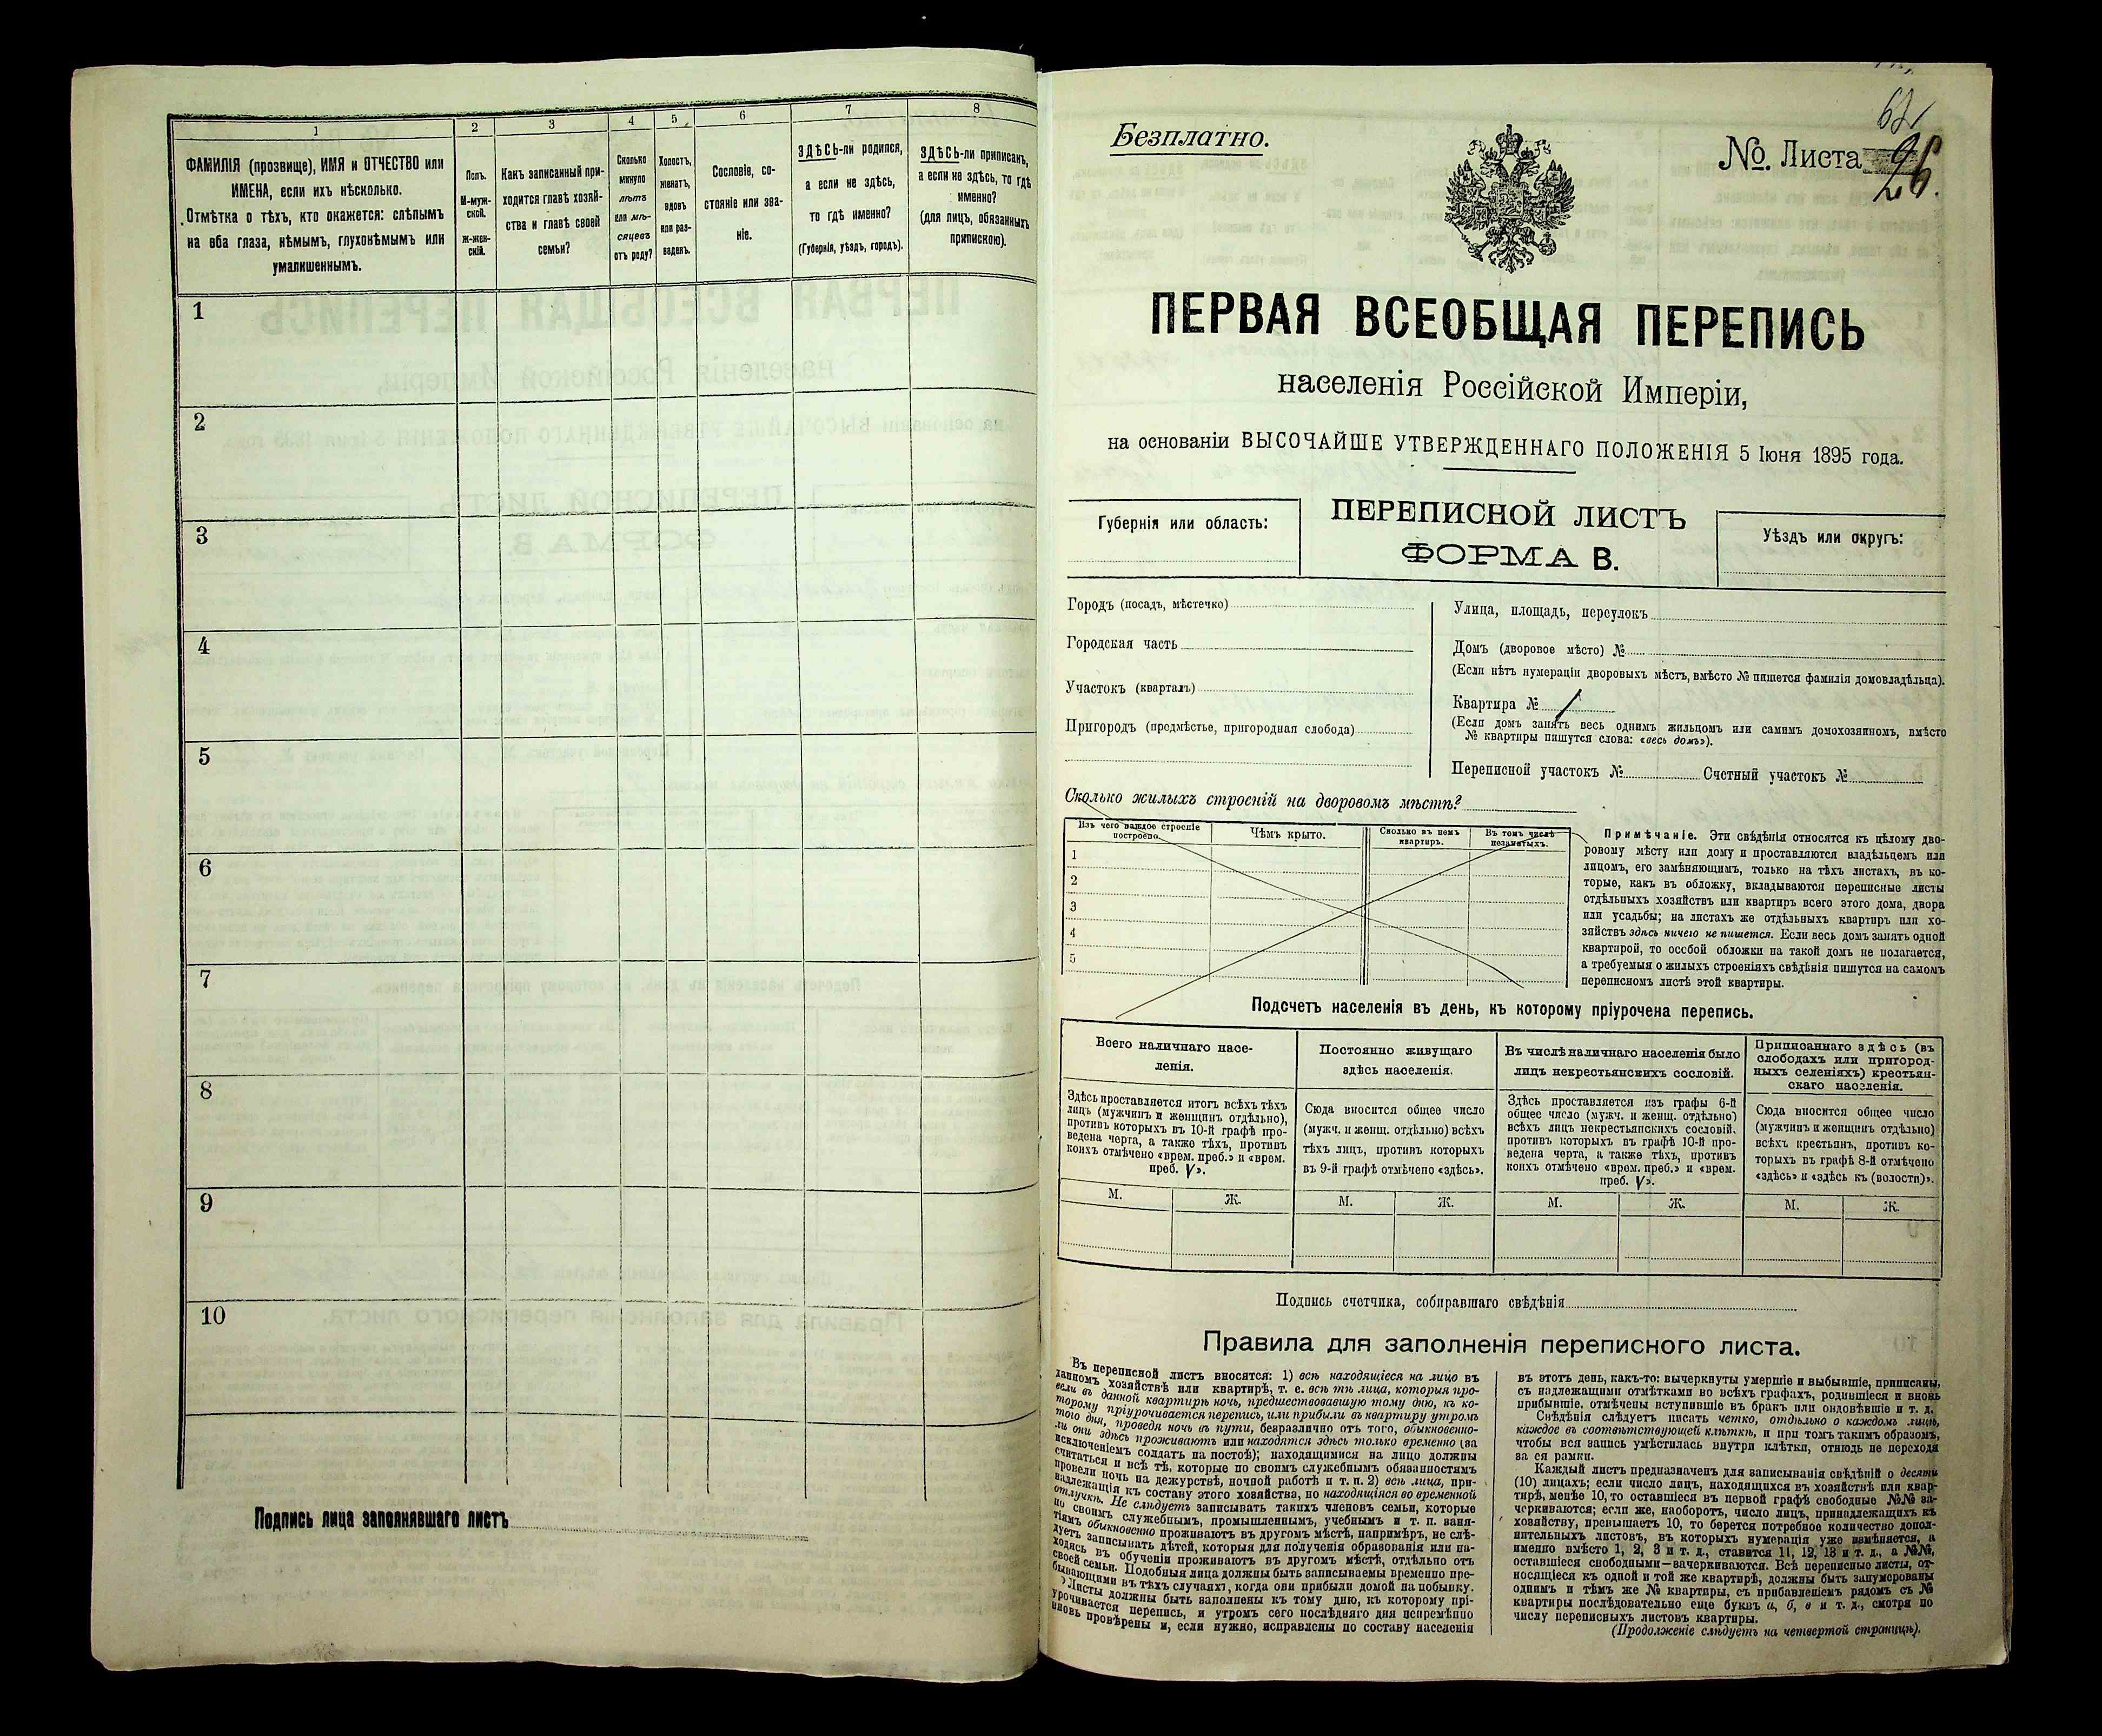 1
2
3
4
5
6
7
8
ФАМИЛІЯ (прозвище), ИМЯ и ОТЧЕСТВО или
ИМЕНА, если ихъ нѣсколько.
Отмѣтка о тѣхъ, кто окажется: слѣпымъ
на оба глаза, нѣмымъ, глухонѣмымъ или
умалишеннымъ.
Полъ.
М-муж-
ской.
Ж-жен-
скій.
Какъ записанный при-
ходится главѣ хозяй-
ства и главѣ своей
семьи?
Сколько
минуло
лѣтъ
или мѣ-
сяцевъ
отъ роду?
Холостъ,
женатъ,
вдовъ
или раз-
веденъ.
Сословіе, со-
стояніе или зва-
ніе.
ЗДѢСЬ-ли родился,
а если не здѣсь,
то гдѣ именно?
(Губернія, уѣздъ, городъ).
ЗДѢСЬ-ли приписанъ,
а если не здѣсь, то гдѣ
именно?
(для лицъ, обязанныхъ
припискою).
1
2
3
4
5
6
7
8
9
10
Подпись лица заполнявшаго листъ
Безплатно.
№. Листа 26.
ПЕРВАЯ ВСЕОБЩАЯ ПЕРЕПИСЬ
населенія Россійской Имперіи,
на основаніи ВЫСОЧАЙШЕ УТВЕРЖДЕННАГО ПОЛОЖЕНІЯ 5 Іюня 1895 года.
Губернія или область:
ПЕРЕПИСНОЙ ЛИСТЪ
ФОРМА В.
Уѣздъ или округъ:
Городъ (посадъ, мѣстечко)
Городская часть
Участокъ (кварталъ)
Пригородъ (предмѣстье, пригородная слобода)
Улица, площадь, переулокъ
Домъ (дворовое мѣсто) №
(Если нѣтъ нумераціи дворовыхъ мѣстъ, вмѣсто № пишется фамилія домовладѣльца).
Квартира №
(Если домъ занятъ весь однимъ жильцомъ или самимъ домохозяиномъ, вмѣсто
№ квартиры пишутся слова: «весь домъ»).
Переписной участокъ № Счетный участокъ №
Сколько жилыхъ строеній на дворовомъ мѣстѣ?
Изъ чего каждое строеніе
построено.
Чѣмъ крыто.
Сколько въ немъ
квартиръ.
Въ томъ числѣ
незанятыхъ.
1
2
3
4
5
Примѣчаніе. Эти свѣдѣнія относятся къ цѣлому дво-
ровому мѣсту или дому и проставляются владѣльцемъ или
лицомъ, его замѣняющимъ, только на тѣхъ листахъ, въ ко-
торые, какъ въ обложку, вкладываются переписные листы
отдѣльныхъ хозяйствъ или квартиръ всего этого дома, двора
или усадьбы; на листахъ же отдѣльныхъ квартиръ или хо-
зяйствъ здѣсь ничего не пишется. Если весь домъ занятъ одной
квартирой, то особой обложки на такой домъ не полагается,
а требуемыя о жилыхъ строеніяхъ свѣдѣнія пишутся на самомъ
переписномъ листѣ этой квартиры.
Подсчетъ населенія въ день, къ которому пріурочена перепись.
Всего наличнаго насе-
ленія.
Постоянно живущаго
здѣсь населенія.
Въ числѣ наличнаго населенія было
лицъ некрестьянскихъ сословій.
Приписаннаго здѣсь (въ
слободахъ или пригород-
ныхъ селеніяхъ) крестьян-
скаго населенія.
Здѣсь проставляется итогъ всѣхъ тѣхъ
лицъ (мужчинъ и женщинъ отдѣльно),
противъ которыхъ въ 10-й графѣ про-
ведена черта, а также тѣхъ, противъ
коихъ отмѣчено «врем. преб.» и «врем.
преб. V».
Сюда вносится общее число
(мужч. и женщ. отдѣльно) всѣхъ
тѣхъ лицъ, противъ которыхъ
въ 9-й графѣ отмѣчено «здѣсь».
Здѣсь проставляется изъ графы 6-й
общее число (мужч. и женщ. отдѣльно)
всѣхъ лицъ некрестьянскихъ сословій,
противъ которыхъ въ графѣ 10-й про-
ведена черта, а также тѣхъ, противъ
коихъ отмѣчено «врем. преб.» и «врем.
преб. V».
Сюда вносится общее число
(мужчинъ и женщинъ отдѣльно)
всѣхъ крестьянъ, противъ ко-
торыхъ въ графѣ 8-й отмѣчено
«здѣсь» и «здѣсь къ (волости)».
М. Ж. М. Ж. М. Ж. М. Ж.
Подпись счетчика, собиравшаго свѣдѣнія
Правила для заполненія переписного листа.
Въ переписной листъ вносятся: 1) всѣ находящіеся на лицо въ
данномъ хозяйствѣ или квартирѣ, т. е. всѣ тѣ лица, которыя про-
вели въ данной квартирѣ ночь, предшествовавшую тому дню, къ ко-
торому пріурочивается перепись, или прибыли въ квартиру утромъ
того дня, проведя ночь въ пути, безразлично отъ того, обыкновенно-
ли они здѣсь проживаютъ или находятся здѣсь только временно (за
исключеніемъ солдатъ на постоѣ); находящимися на лицо должны
считаться и всѣ тѣ, которые по своимъ служебнымъ обязанностямъ
провели ночь на дежурствѣ, ночной работѣ и т. п. 2) всѣ лица, при-
надлежащія къ составу этого хозяйства, но находящіяся во временной
отлучкѣ. Не слѣдуетъ записывать такихъ членовъ семьи, которые
по своимъ служебнымъ, промышленнымъ, учебнымъ и т. п. заня-
тіямъ обыкновенно проживаютъ въ другомъ мѣстѣ, напримѣръ, не слѣ-
дуетъ записывать дѣтей, которыя для полученія образованія или на-
ходясь въ обученіи проживаютъ въ другомъ мѣстѣ, отдѣльно отъ
своей семьи. Подобныя лица должны быть записываемы временно пре-
бывающими въ тѣхъ случаяхъ, когда они прибыли домой на побывку.
Листы должны быть заполнены къ тому дню, къ которому прі-
урочивается перепись, и утромъ сего послѣдняго дня непремѣнно
вновь провѣрены и, если нужно, исправлены по составу населенія
въ этотъ день, какъ-то: вычеркнуты умершіе и выбывшіе, приписаны,
съ надлежащими отмѣтками во всѣхъ графахъ, родившіеся и вновь
прибывшіе, отмѣчены вступившіе въ бракъ или овдовѣвшіе и т. д.
Свѣдѣнія слѣдуетъ писать четко, отдѣльно о каждомъ лицѣ,
каждое въ соотвѣтствующей клѣткѣ, и при томъ такимъ образомъ,
чтобы вся запись умѣстилась внутри клѣтки, отнюдь не переходя
за ея рамки.
Каждый листъ предназначенъ для записыванія свѣдѣній о десяти
(10) лицахъ; если число лицъ, находящихся въ хозяйствѣ или квар-
тирѣ, менѣе 10, то оставшіеся въ первой графѣ свободные №№ за-
черкиваются; если же, наоборотъ, число лицъ, принадлежащихъ къ
хозяйству, превышаетъ 10, то берется потребное количество допол-
нительныхъ листовъ, въ которыхъ нумерація уже измѣняется, а
именно вмѣсто 1, 2, 3 и т. д., ставится 11, 12, 13 и т. д., а №№,
оставшіеся свободными—зачеркиваются. Всѣ переписные листы, от-
носящіеся къ одной и той же квартирѣ, должны быть занумерованы
однимъ и тѣмъ же № квартиры, съ прибавленіемъ рядомъ съ №
квартиры послѣдовательно еще буквъ а, б, в и т. д., смотря по
числу переписныхъ листовъ квартиры.
(Продолженіе слѣдуетъ на четвертой страницѣ).